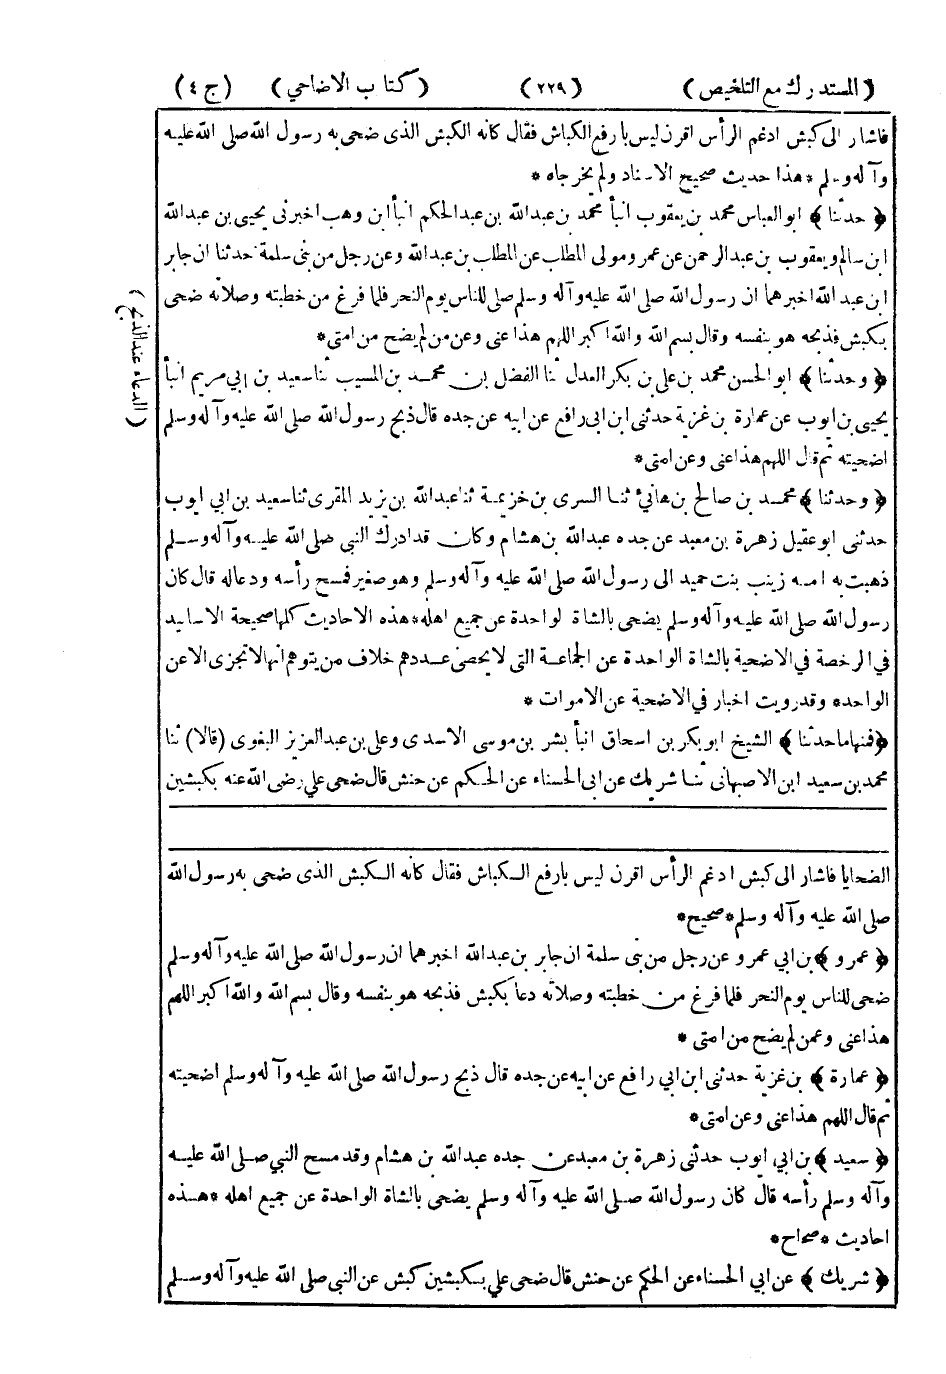 (المستدرك مع التلخيص) (٢٢٩) (كتاب الاضاحي) (ج ٤)
فاشار الى كبش ادغم الرأس اقرن ليس بارفع الكباش فقال كانه الكبش الذى ضحى به رسول الله صلى الله عليه
وآله وسلم * هذا حديث صحيح الاسناد ولم يخرجاه *
﴿ حدثنا ﴾ ابو العباس محمد بن يعقوب انبأ محمد بن عبدالله بن عبدالحكم انبأ ابن وهب اخبرنى يحيى بن عبدالله
ابن سالم ويعقوب بن عبدالرحمن عن عمرو مولى المطلب عن المطلب بن عبدالله وعن رجل من بنى سلمة حدثنا ان جابر
ابن عبدالله اخبرهما ان رسول الله صلى الله عليه وآله وسلم صلى للناس يوم النحر فلما فرغ من خطبته وصلاته ضحى
بكبش فذبحه هو بنفسه وقال بسم الله والله اكبر اللهم هذا عنى وعن من لم يضح من امتى *
﴿ وحدثنا ﴾ ابو الحسن محمد بن على بن بكر العدل ثنا الفضل بن محمد بن المسيب ثنا سعيد بن ابي مريم انبأ
يحيى بن ايوب عن عمارة بن غزية حدثنى ابن ابى رافع عن ابيه عن جده قال ذبح رسول الله صلى الله عليه وآله وسلم
اضحيته ثم قال اللهم هذا عنى وعن امتى *
﴿ وحدثنا ﴾ محمد بن صالح بن هانئ ثنا السرى بن خزيمة ثنا عبدالله بن يزيد المقرى ثنا سعيد بن ابي ايوب
حدثنى ابو عقيل زهرة بن معبد عن جده عبدالله بن هشام وكان قد ادرك النبي صلى الله عليه وآله وسلم
ذهبت به امه زينب بنت حميد الى رسول الله صلى الله عليه وآله وسلم وهو صغير فمسح رأسه ودعا له قال كان
رسول الله صلى الله عليه وآله وسلم يضحى بالشاة الواحدة عن جميع اهله * هذه الاحاديث كلها صحيحة الاسانيد
في الرخصة في الاضحية بالشاة الواحدة عن الجماعة التى لا يحصى عددهم خلاف من يتوهم انها لا تجزى الا عن
الواحد * وقد رويت اخبار في الاضحية عن الاموات *
﴿ فمنها ما حدثنا ﴾ الشيخ ابو بكر بن اسحاق انبأ بشر بن موسى الاسدى وعلى بن عبدالعزيز البغوى (قالا) ثنا
محمد بن سعيد ابن الاصبهانى ثنا شريك عن ابى الحسناء عن الحكم عن حنش قال ضحى علي رضى الله عنه بكبشين
(الدعاء عند الذبح)
الضحايا فاشار الى كبش ادغم الرأس اقرن ليس بارفع الكباش فقال كانه الكبش الذى ضحى به رسول الله
صلى الله عليه وآله وسلم * صحيح *
﴿ عمرو ﴾ بن ابي عمرو عن رجل من بنى سلمة ان جابر بن عبدالله اخبرهما ان رسول الله صلى الله عليه وآله وسلم
ضحى للناس يوم النحر فلما فرغ من خطبته وصلاته دعا بكبش فذبحه هو بنفسه وقال بسم الله والله اكبر اللهم
هذا عنى وعمن لم يضح من امتى *
﴿ عمارة ﴾ بن غزية حدثنى ابن ابي رافع عن ابيه عن جده قال ذبح رسول الله صلى الله عليه وآله وسلم اضحيته
ثم قال اللهم هذا عنى وعن امتى *
﴿ سعيد ﴾ بن ابي ايوب حدثنى زهرة بن معبد عن جده عبدالله بن هشام وقد مسح النبي صلى الله عليه
وآله وسلم رأسه قال كان رسول الله صلى الله عليه وآله وسلم يضحى بالشاة الواحدة عن جميع اهله * هذه
احاديث * صحاح *
﴿ شريك ﴾ عن ابي الحسناء عن الحكم عن حنش قال ضحى علي بكبشين كبش عن النبى صلى الله عليه وآله وسلم